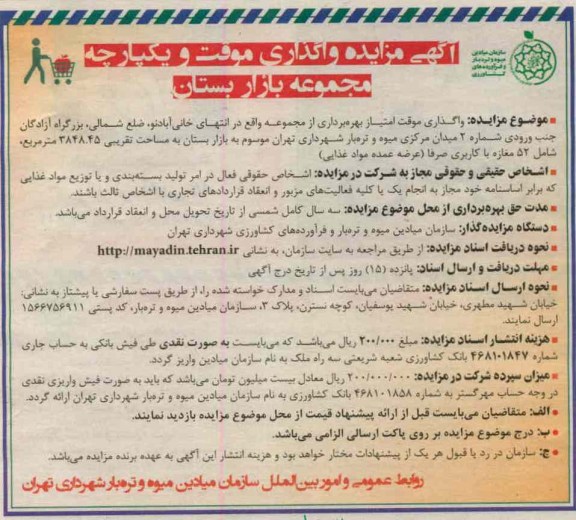 سازمان میادین
میوه و تره‌بار
و فرآورده‌های
کشاورزی
آگهی مزایده واگذاری موقت و یکپارچه
مجموعه بازار بستان
• موضوع مزایده: واگذاری موقت امتیـاز بهره‌برداری از مجموعـه واقع در انتهـای خانی‌آبادنو، ضلع شمـالی، بزرگراه آزادگان
جنب ورودی شماره ۲ میدان مرکزی میوه و تره‌بار شـهرداری تهران موسوم به بازار بستان به مساحت تقریبی ۳۸۴۸.۴۵ مترمربع،
شامل ۵۲ مغازه با کاربری صرفا (عرضه عمده مواد غذایی)
• اشـخاص حقیقی و حقوقی مجاز به شرکت در مزایده: اشـخاص حقوقی فعال در امر تولید بسـته‌بندی و یا توزیع مواد غذایی
که برابر اساسنامه خود مجاز به انجام یک یا کلیه فعالیت‌های مزبور و انعقاد قراردادهای تجاری با اشخاص ثالث باشند.
• مدت حق بهره‌برداری از محل موضوع مزایده: سه سال کامل شمسی از تاریخ تحویل محل و انعقاد قرارداد می‌باشد.
• دستگاه مزایده‌گذار: سازمان میادین میوه و تره‌بار و فرآورده‌های کشاورزی شهرداری تهران
• نحوه دریافت اسناد مزایده: از طریق مراجعه به سایت سازمان، به نشانی http://mayadin.tehran.ir
• مهلت دریافت و ارسال اسناد: پانزده (۱۵) روز پس از تاریخ درج آگهی
• نحوه ارسـال اسـناد مزایده: متقاضیان می‌بایست اسـناد و مدارک خواسته شده را، از طریق پست سفارشی یا پیشتاز به نشانی:
خیابان شـهید مطهری، خیابان شـهید یوسفیان، کوچه نسترن، پلاک ۳، سـازمان میادین میوه و تره‌بار، کد پستی ۱۵۶۶۷۵۶۹۱۱
ارسال نمایند.
• هزینه انتشـار اسـناد مزایده: مبلغ ۲۰۰/۰۰۰ ریال می‌باشـد که می‌بایسـت به صورت نقدی طی فیش بانکی به حساب جاری
شماره ۴۶۸۱۰۱۸۴۷ بانک کشاورزی شعبه شریعتی سه راه ملک به نام سازمان میادین واریز گردد.
• میزان سپرده شرکت در مزایده: ۲۰۰/۰۰۰/۰۰۰ ریال معادل بیست میلیون تومان می‌باشد که باید به صورت فیش واریزی نقدی
در وجه حساب مهرگستر به شماره ۴۶۸۱۰۱۸۵۸ بانک کشاورزی به نام سازمان میادین میوه و تره‌بار شهرداری تهران ارائه گردد.
• الف: متقاضیان می‌بایست قبل از ارائه پیشنهاد قیمت از محل موضوع مزایده بازدید نمایند.
• ب: درج موضوع مزایده بر روی پاکت ارسالی الزامی می‌باشد.
• ج: سازمان در رد یا قبول هر یک از پیشنهادات مختار خواهد بود و هزینه انتشار این آگهی به عهده برنده مزایده می‌باشد.
روابط عمومی و امور بین‌الملل سازمان میادین میوه و تره‌بار شهرداری تهران